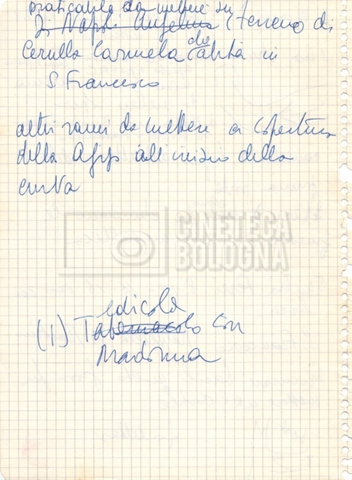 praticabile da mettere su
Di Napoli Angelina (terreno di
Cerullo Carmela che abita in
S. Francesco
altri rami da mettere a copertura
della Agip all'inizio della
curva
CINETECA
BOLOGNA
edicola
(1) Tabernacolo con
Madonna